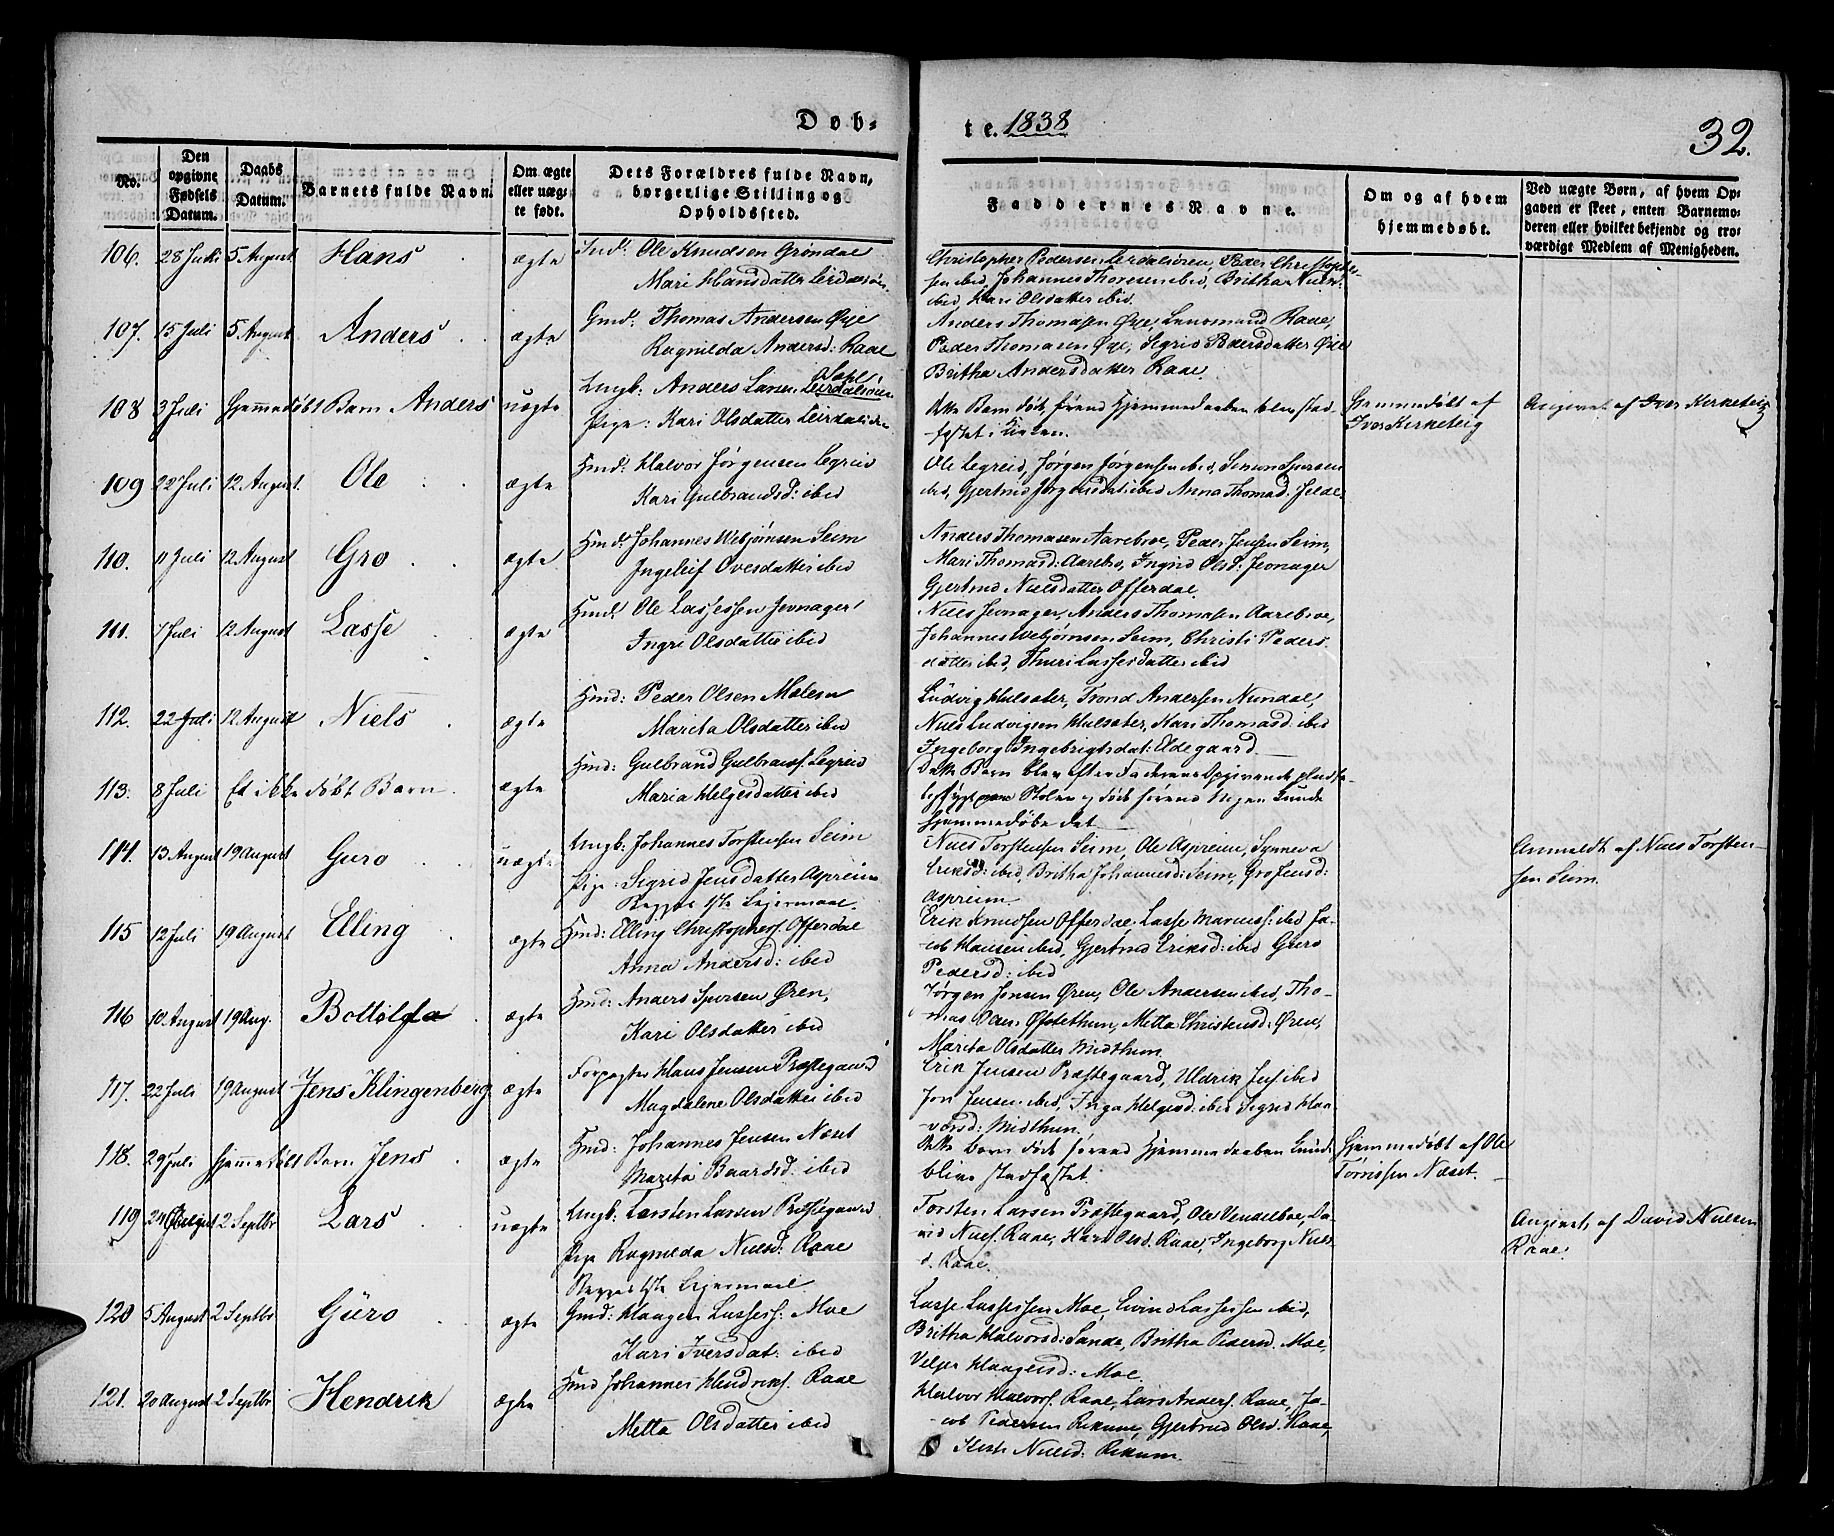 Døb-
te. 1838
32.
No.
Den opgivne Fødsels Datum.
Daabs Datum.
Barnets fulde Navn.
Om ægte eller uægte født.
Dets Forældres fulde Navn, borgerlige Stilling og Opholdssted.
Faddernes Navne.
Om og af hvem hjemmedøbt.
Ved uægte Børn, af hvem Opgaven er skeet, enten Barnemoderen eller hvilket bekjendt og troværdigt Medlem af Menigheden.
106. 28 Juli 5 August Hans ægte Ole Knudsen Grøndal
Mari Hansdatter Leirdalsøren
Christopher Pedersen Lerdalsøren, Peder Christophersen ibid, Johannes Thoresen ibid, Britha
ibid, Kari Olsdatter ibid.
107. 15 Juli 5 August Anders ægte Gmd: Thomas Andersen Øye
Ragnilda Andersd: Raae
Anders Thomasen Øye, Lensmand Raae,
Peder Thomasen Øye, Sigrid Pedersdatter Øye
Britha Andersdatter Raae.
108 3 Juli Hjemmedøbt Barn Anders uægte Ungk: Anders Larsen Leirdalsøren
Pige: Kari Olsdatter Leirdalsøren
Dette Barn døde førend Hjemmedaaben blev stad-
fæstet i Kirken.
Hjemmedøbt af
Iver Kirketeig
Angivet af Iver Kirketeig
109 22 Juli 12 August. Ole ægte Hmd: Halvor Jørgensen Legreid
Kari Gulbrandsd: ibid
Ole Legreid, Jørgen Jørgensen ibid, Simon Sjursen
ibid, Gjertrud Jørgensdat: ibid Anna Thomasd:
110. 11 Juli 12 August Gro ægte Hmd: Johannes Webjørnsen Seim
Ingeleif Ovesdatter ibid
Anders Thomasen Aarebroe, Peder Jensen Seim,
Mari Thomasd: Aarebro, Ingrid Olsd: Jevnager
Gjertrud Nielsdatter Offerdal.
111. 7 Juli 12 August Lasse ægte Hmd: Ole Lassesen Jevnager
Ingri Olsdatter ibid
Niels Jevnager, Anders Thomasen Aarebroe,
Johannes Webjørnsen Seim, Christi Peders
datter ibid, Thuri Lassesdatter ibid
112. 22 Juli 12 August Niels ægte Hmd: Peder Olsen Molesen
Marita Olsdatter ibid
Ludvig Hulsater, Trond Andersen Nundal,
Niels Ludvigsen Hulsater, Kari Thomasd: ibid
Ingeborg Ingebrigtsdat: Eldegaard.
113. 8 Juli Et ikke døbt Barn. ægte Hmd: Gulbrand Gulbrands. Legreid
Maria Helgesdatter ibid
Dette Barn blev efter Faderens Opgivende
og døde førend Nogen kunde
hjemmedøbe det
114. 13 August 19 August Guro uægte Ungk: Johannes Torstensen Seim
Pige: Sigrid Jensdatter Aspreim
Begges 1ste Leiermaal.
Niels Torstensen Seim, Ole Aspreim, Synneva
Eriksd: ibid, Britha Johannesd: Seim, Gro Jensd:
Aspreim.
Anmeldt af Niels Torsten-
sen Seim.
115 12 Juli 19 August Elling ægte Hmd: Elling Christophers. Offerdal
Anna Andersd: ibid
Erik Knudsen Offerdal, Lasse Mariuss: ibid Ja-
cob Hansen ibid, Gjertrud Eriksd: ibid Guro
Pedersd: ibid
116 10 August 19 Aug. Bottolfa ægte Hmd: Anders Sjursen Øren,
Kari Olsdatter ibid
Jørgen Jonsen Øren, Ole Andersen ibid, Tho-
mas Olsen Øfstethun, Metta Christensd: Øren,
Marita Olsdatter Midthun.
117. 22 Juli 19 August Jens Klingenberg ægte Forpagter Hans Jensen Præstegaard
Magdalene Olsdatter ibid
Erik Jensen Præstegaard, Uldrik Jens. ibid
Jon Jensen ibid, Inga Helgesd: ibid Sigrid Hal-
vorsd: Midthun.
118. 29 Juli Hjemmedøbt Barn Jens ægte Hmd: Johannes Jensen Næset
Marita Baardsd. ibid
Dette Barn døde førend Hjemmedaaben kunde
blive stadfæstet
Hjemmedøbt af Ole
Torrissen Næset.
119 2 Septbr Lars uægte Ungk: Torsten Larsen Præstegaard
Pige Ragnilda Nielsd: Raae
Begges 1ste Leiermaal
Torsten Larsen Præstegaard, Ole Vendelboe, Da-
vid Niels. Raae, Kari Olsd. Raae, Ingeborg Niels-
d. Raae.
Angivet, af David Nielsen
Raae.
120 5 August 2 Septbr Guro ægte Gmd: Haagen Lasses: Moe
Kari Iversdat: ibid
Lasse Lassesen Moe, Eivind Lassesen ibid,
Britha Halvorsd: Sande, Britha Pedersd. Moe,
Haagensd: Moe.
121. 20 August 2 Septbr. Hendrik ægte Hmd Johannes Hendriks. Raae
Metta Olsdatter ibid
Halvor Halvors. Raae, Lars Anders. Raae, Ja-
cob Pedersen Rikum, Gjertrud Olsd. Raae,
Nielsd: Rikum.